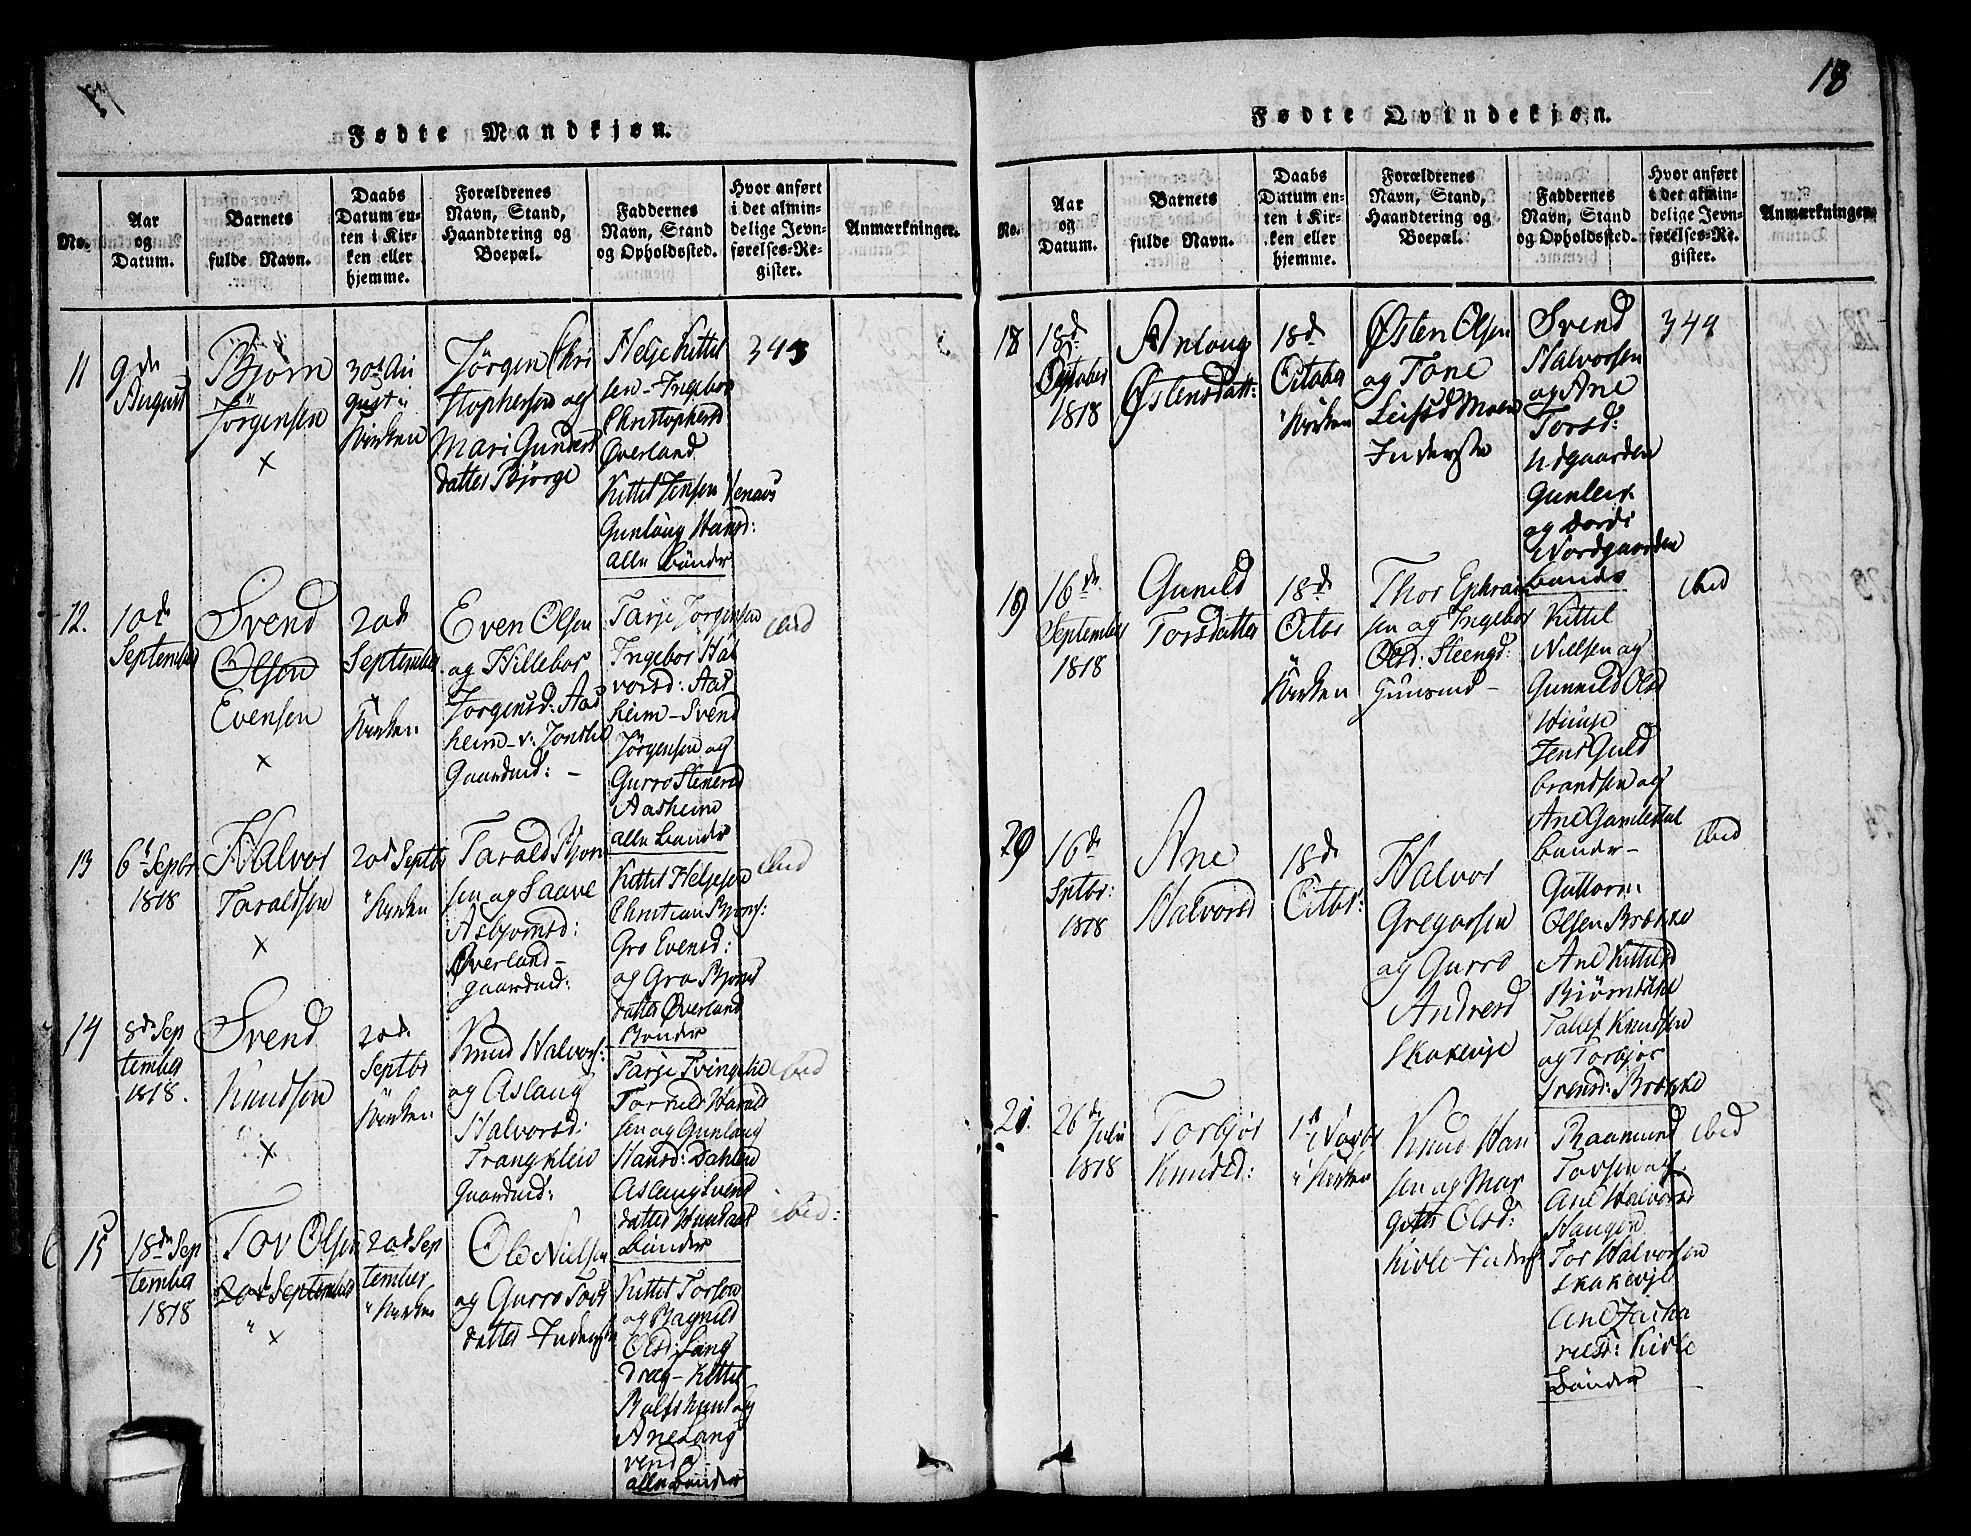 17
Fødte Mandkjøn.
No.
Aar
og
Datum.
Barnets
fulde Navn.
Daabs
Datum en-
ten i Kir-
ken eller
hjemme.
Forældrenes
Navn, Stand,
Haandtering og
Boepæl.
Faddernes
Navn, Stand
og Opholdssted.
Hvor anført
i det almin-
delige Jevn-
førelses-Re-
gister.
Anmærkninger.
11
9de
August
Bjørn
Jörgensen
x
30d Au
gust i
Kirken
Jørgen Chri
stophersen og
Mari Gunders
datter Bjørge
Helje Kittel
sen - Ingebor
Christophersd
Øverland
Kittel Jensen
Gunlaug Hansd:
alle Bønder
343
12.
10d
September
Svend
Olsen
Evensen
x
20d
September
Kirken
Even Olsen
og Hillebor
Jørgensd: Aas
heim
Gaardmd: -
Tarje Jørgensen
Ingebor Hal
vorsd: Aas
heim - Svend
Jørgensen og
Gurro Steners
Aasheim
alle Bønder
ibid
13
6d Septbr
1818
Halvor
Taraldsen
x
20d Septbr
i Kirken
Tarald Bjørn
sen og Saave
Asbjørnsd:
Øverland -
gaardmd:
Kittel Heljesen
Christian Bjørns:
Gro Evensd:
og Gro Bjørns
datter Øverland
Bønder
ibid
14
8d Sep
tember
1818.
Svend
Knudsen
x
20d
Septbr
Kirken
Knud Halvors:
og Aslaug
Halvorsd:
Trangkleiv
Gaardmd:
Tarje Tvingelie
Tor
Harald
sen og Gunlaug
Hansd: Dahlen
Aslaug Svend
datter
Bønder
ibid
15
18de Sep
tember
1818
Tov Olsen
20d September
x
20d Sep
tember
i Kirken
Ole Nielsen
og Gurro Tovs
datter Inderste
Kittel Torsen
og Ragnild
Olsd: Lang
drag - Kittel
og
Ane Lang
alle Bønder
ibid:
18
Fødte Qvindekjøn.
No.
Aar
og
Datum.
Barnets
fulde Navn.
Daabs
Datum en-
ten i Kir-
ken eller
hjemme.
Forældrenes
Navn, Stand,
Haandtering og
Boepæl.
Faddernes
Navn, Stand
og Opholdssted.
Hvor anført
i det almin-
delige Jevn-
førelses-Re-
gister.
Anmærkninger.
18
18d
October
1818
Anlaug
Østensdatt:
18d
Octobe
i Kirken
Østen Olsen
og Tone
Leifsd Moen
Inderste
Svend
Halvorsen
og Ane
Torsd:
Udgaarden
Gunleik
og Dordi
Nordgaarden
bønder
344
19
16de
September
1818
Gunild
Torsdatter
18d
Octbr
Kirken
Thor Ephraim
sen og Ingebor
Olsd: Steengd:
Huusmd -
Kittil
Nielsen og
Gunnild Olsd
Jens Guld
brandsen og
Ane Gamledal
bønder -
ibid
20
16de
Sptbr:
1818
Ane
Halvorsd
18d
Octbr:
Halvor
Gregarsen
og Gurro
Andresd
Skakevje
Guttorm
Olsen Brække
Ane Kittilsd
Tallef Knudsen
og Torbjør
Svensd: Brække
ibid
21.
26de
Julii
1818
Torbjør
Knudsd:
1d Novbr
i Kirken
Knud Han
sen og Mar
gith Olsd:
Kivle - Inderst
Raamund
Tovsen og
Ane Halvorsd
Haugen
Tor Halvorsen
Skakevje
Ane Zacha
riesd: Kivle
Bønder
ibid